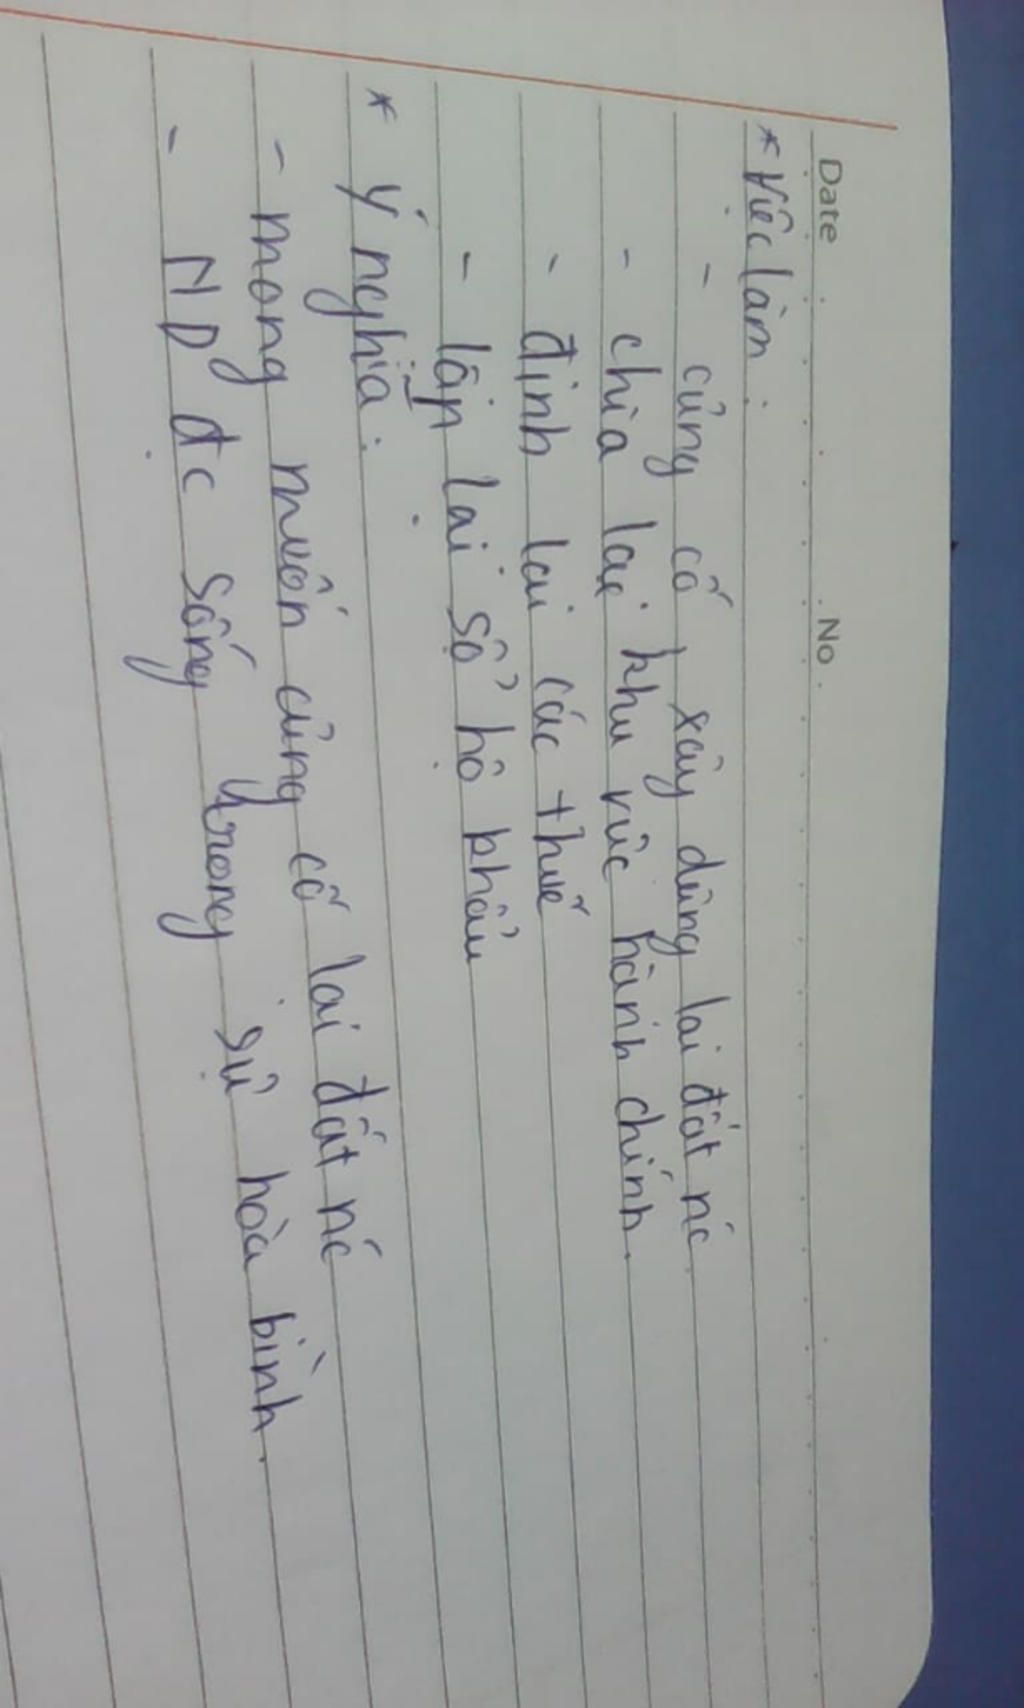 Date No
* Việc làm :
- củng cố, xây dựng lại đất nc
- chia lại khu vực hành chính.
- định lại các thuế
- lập lại sổ hộ khẩu
* Ý nghĩa :
- mong muốn củng cố lại đất nc
- ND đc sống trong sự hoà bình.